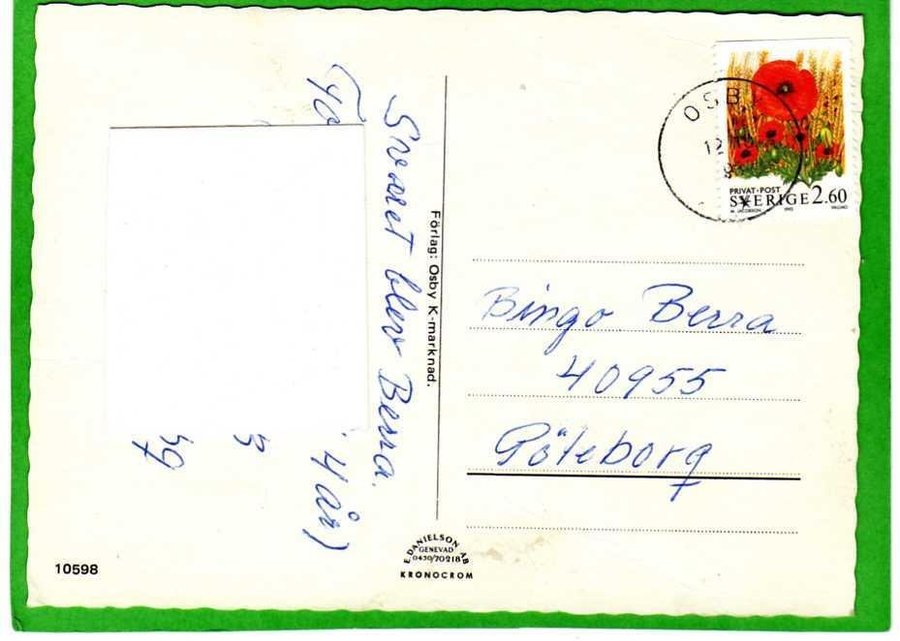 Svaret blev Berra.
4 år)
Förlag: Osby K-marknad.
OSB
12
PRIVAT-POST
SVERIGE 2.60
Bingo Berra
40955
Göteborg
E. DANIELSON AB
GENEVAD
0430/70218
KRONOCROM
10598